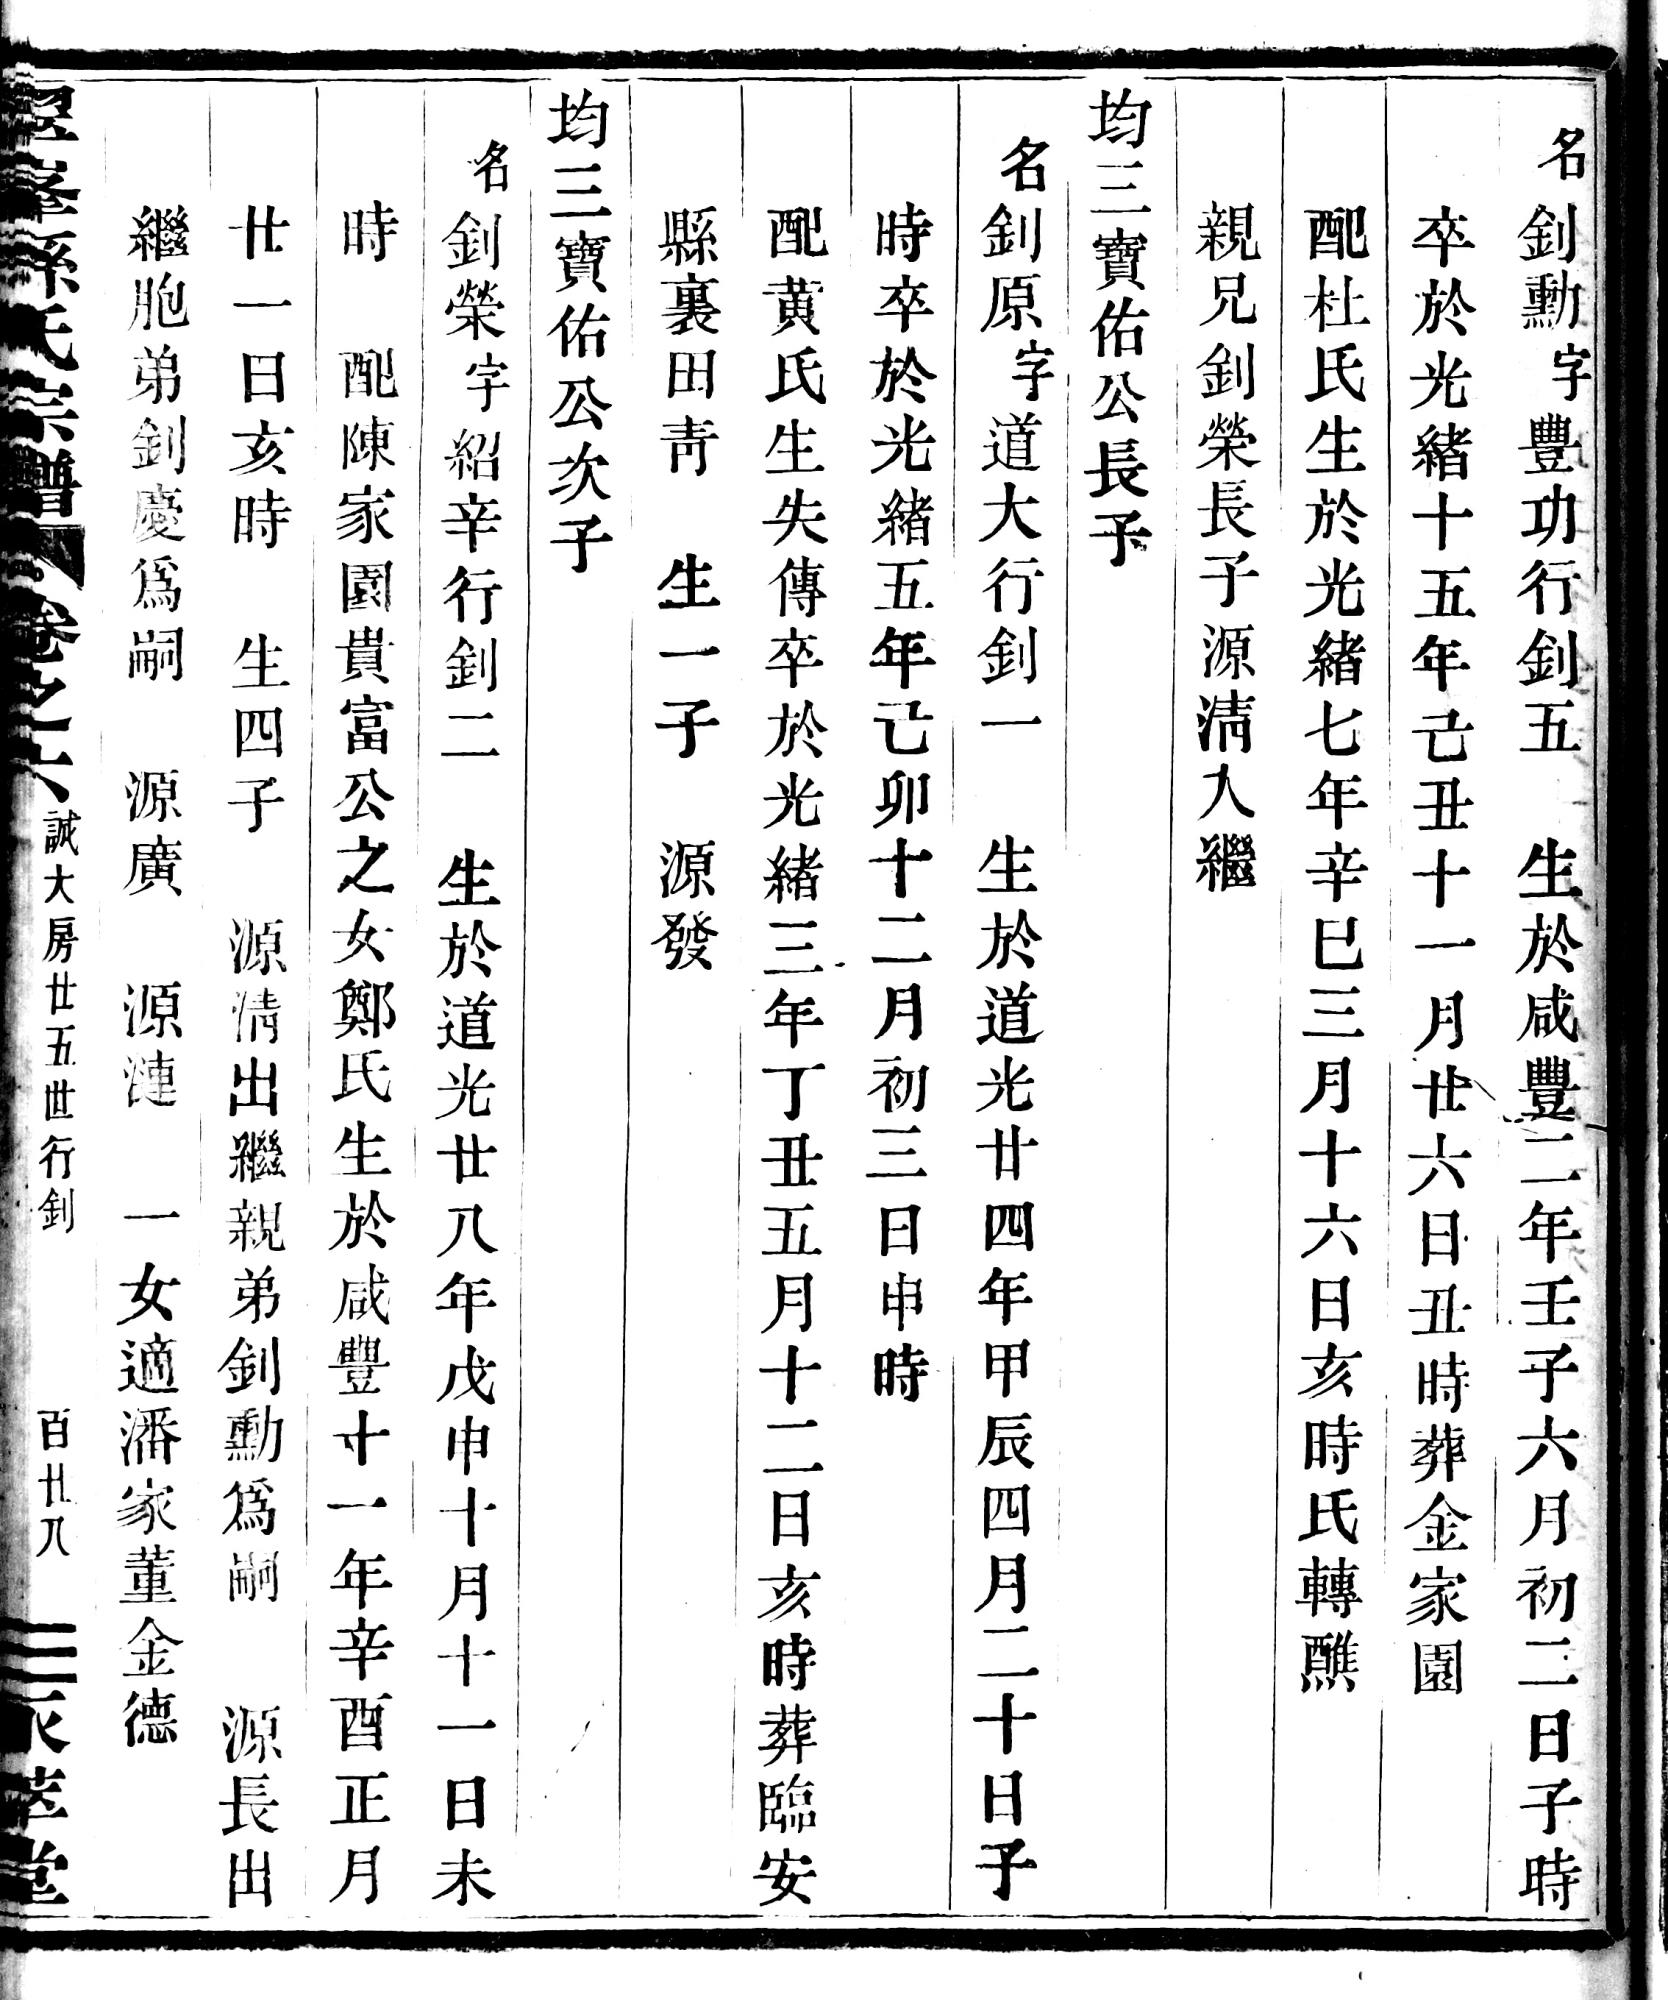 名釗勳字豐功行釗五　生於咸豐二年壬子六月初二日子時
卒於光緒十五年己丑十一月廿六日丑時葬金家園
配杜氏生於光緒七年辛巳三月十六日亥時氏轉醮
親兄釗榮長子源淸入繼
均三寶佑公長子
名釗原字道大行釗一　生於道光廿四年甲辰四月二十日子
時卒於光緒五年己卯十二月初三日申時
配黃氏生失傳卒於光緒三年丁丑五月十二日亥時葬臨安
縣裏田靑　生一子　源發
均三寶佑公次子
名釗榮字紹辛行釗二　生於道光廿八年戊申十月十一日未
時　配陳家園貴富公之女鄭氏生於咸豐十一年辛酉正月
廿一日亥時　生四子　源淸出繼親弟釗勳爲嗣　源長出
繼胞弟釗慶爲嗣　源廣　源漣　一女適潘家董金德
孫氏宗譜　卷之六　誠大房廿五世行釗　百廿八　堂